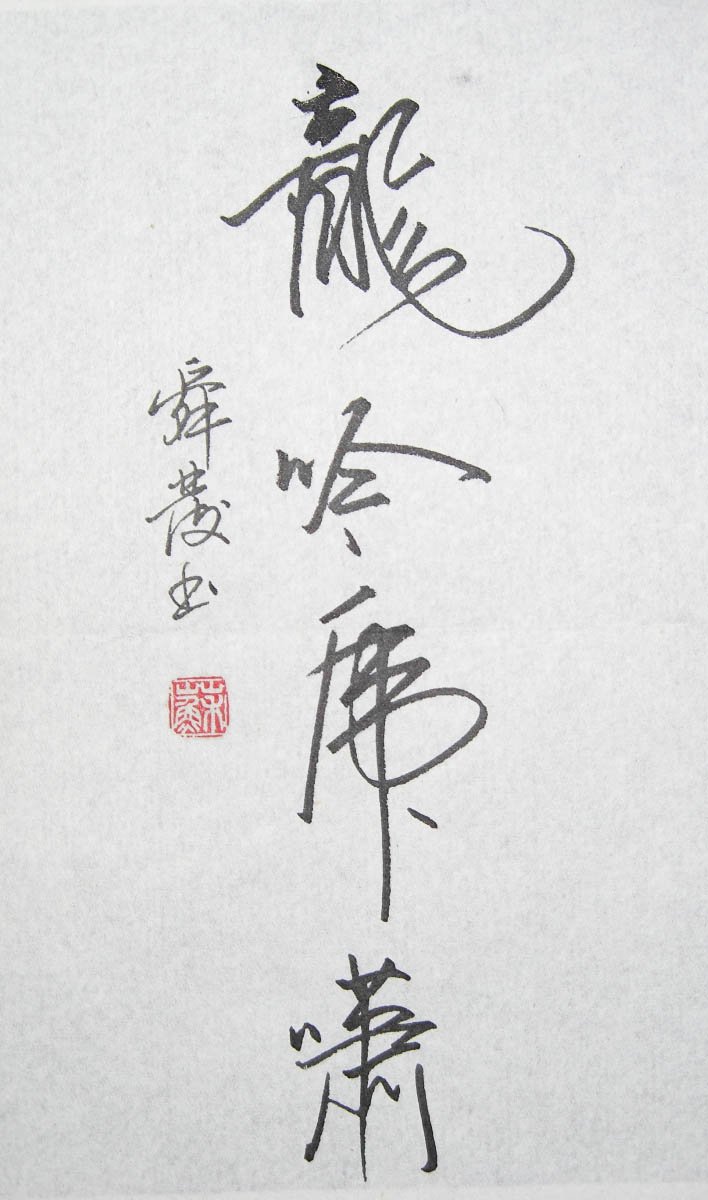 龍吟虎嘯
舜發書